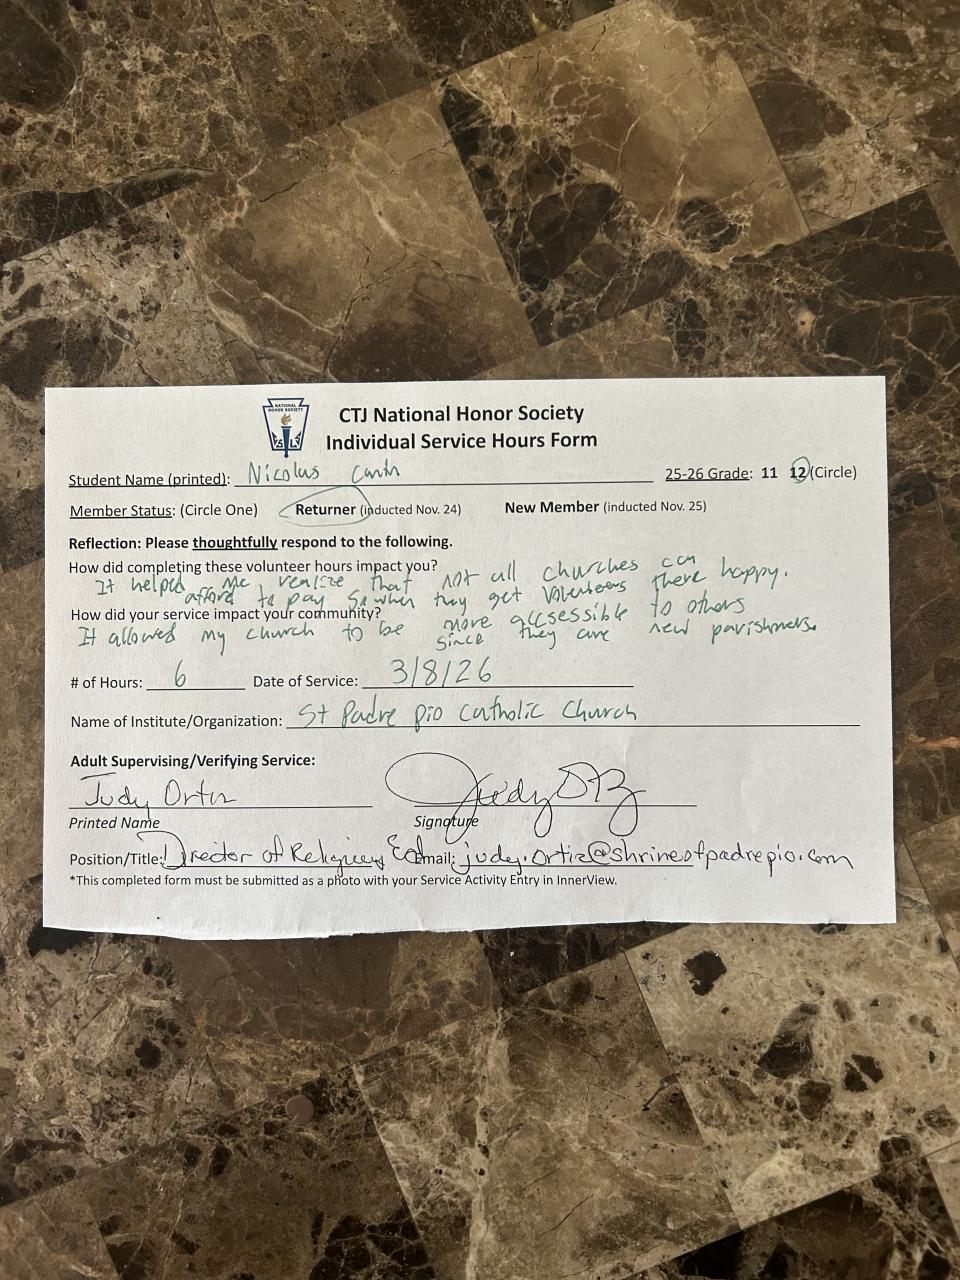 NATIONAL
HONOR SOCIETY
CTJ National Honor Society
Individual Service Hours Form
Student Name (printted): Nicolas 25-26 Grade: 11 12 (Circle)
Member Status: (Circle One) Returner (inducted Nov. 24) New Member (inducted Nov. 25)
Reflection: Please thoughtfully respond to the following.
How did completing these volunteer hours impact you?
It helped me realize that not all churches can
afford to pay so when they get volunteers there happy.
How did your service impact your community?
It allowed my church to be more accsessible to others
since they are new parishners.
# of Hours: 6 Date of Service: 3/8/26
Name of Institute/Organization: St Padre pio Catholic Church
Adult Supervising/Verifying Service:
Judy Ortiz Judy
Printed Name Signature
Position/Title: Director of Religious Ed Email: judy.ortiz@shrineofpadrepio.com
*This completed form must be submitted as a photo with your Service Activity Entry in InnerView.